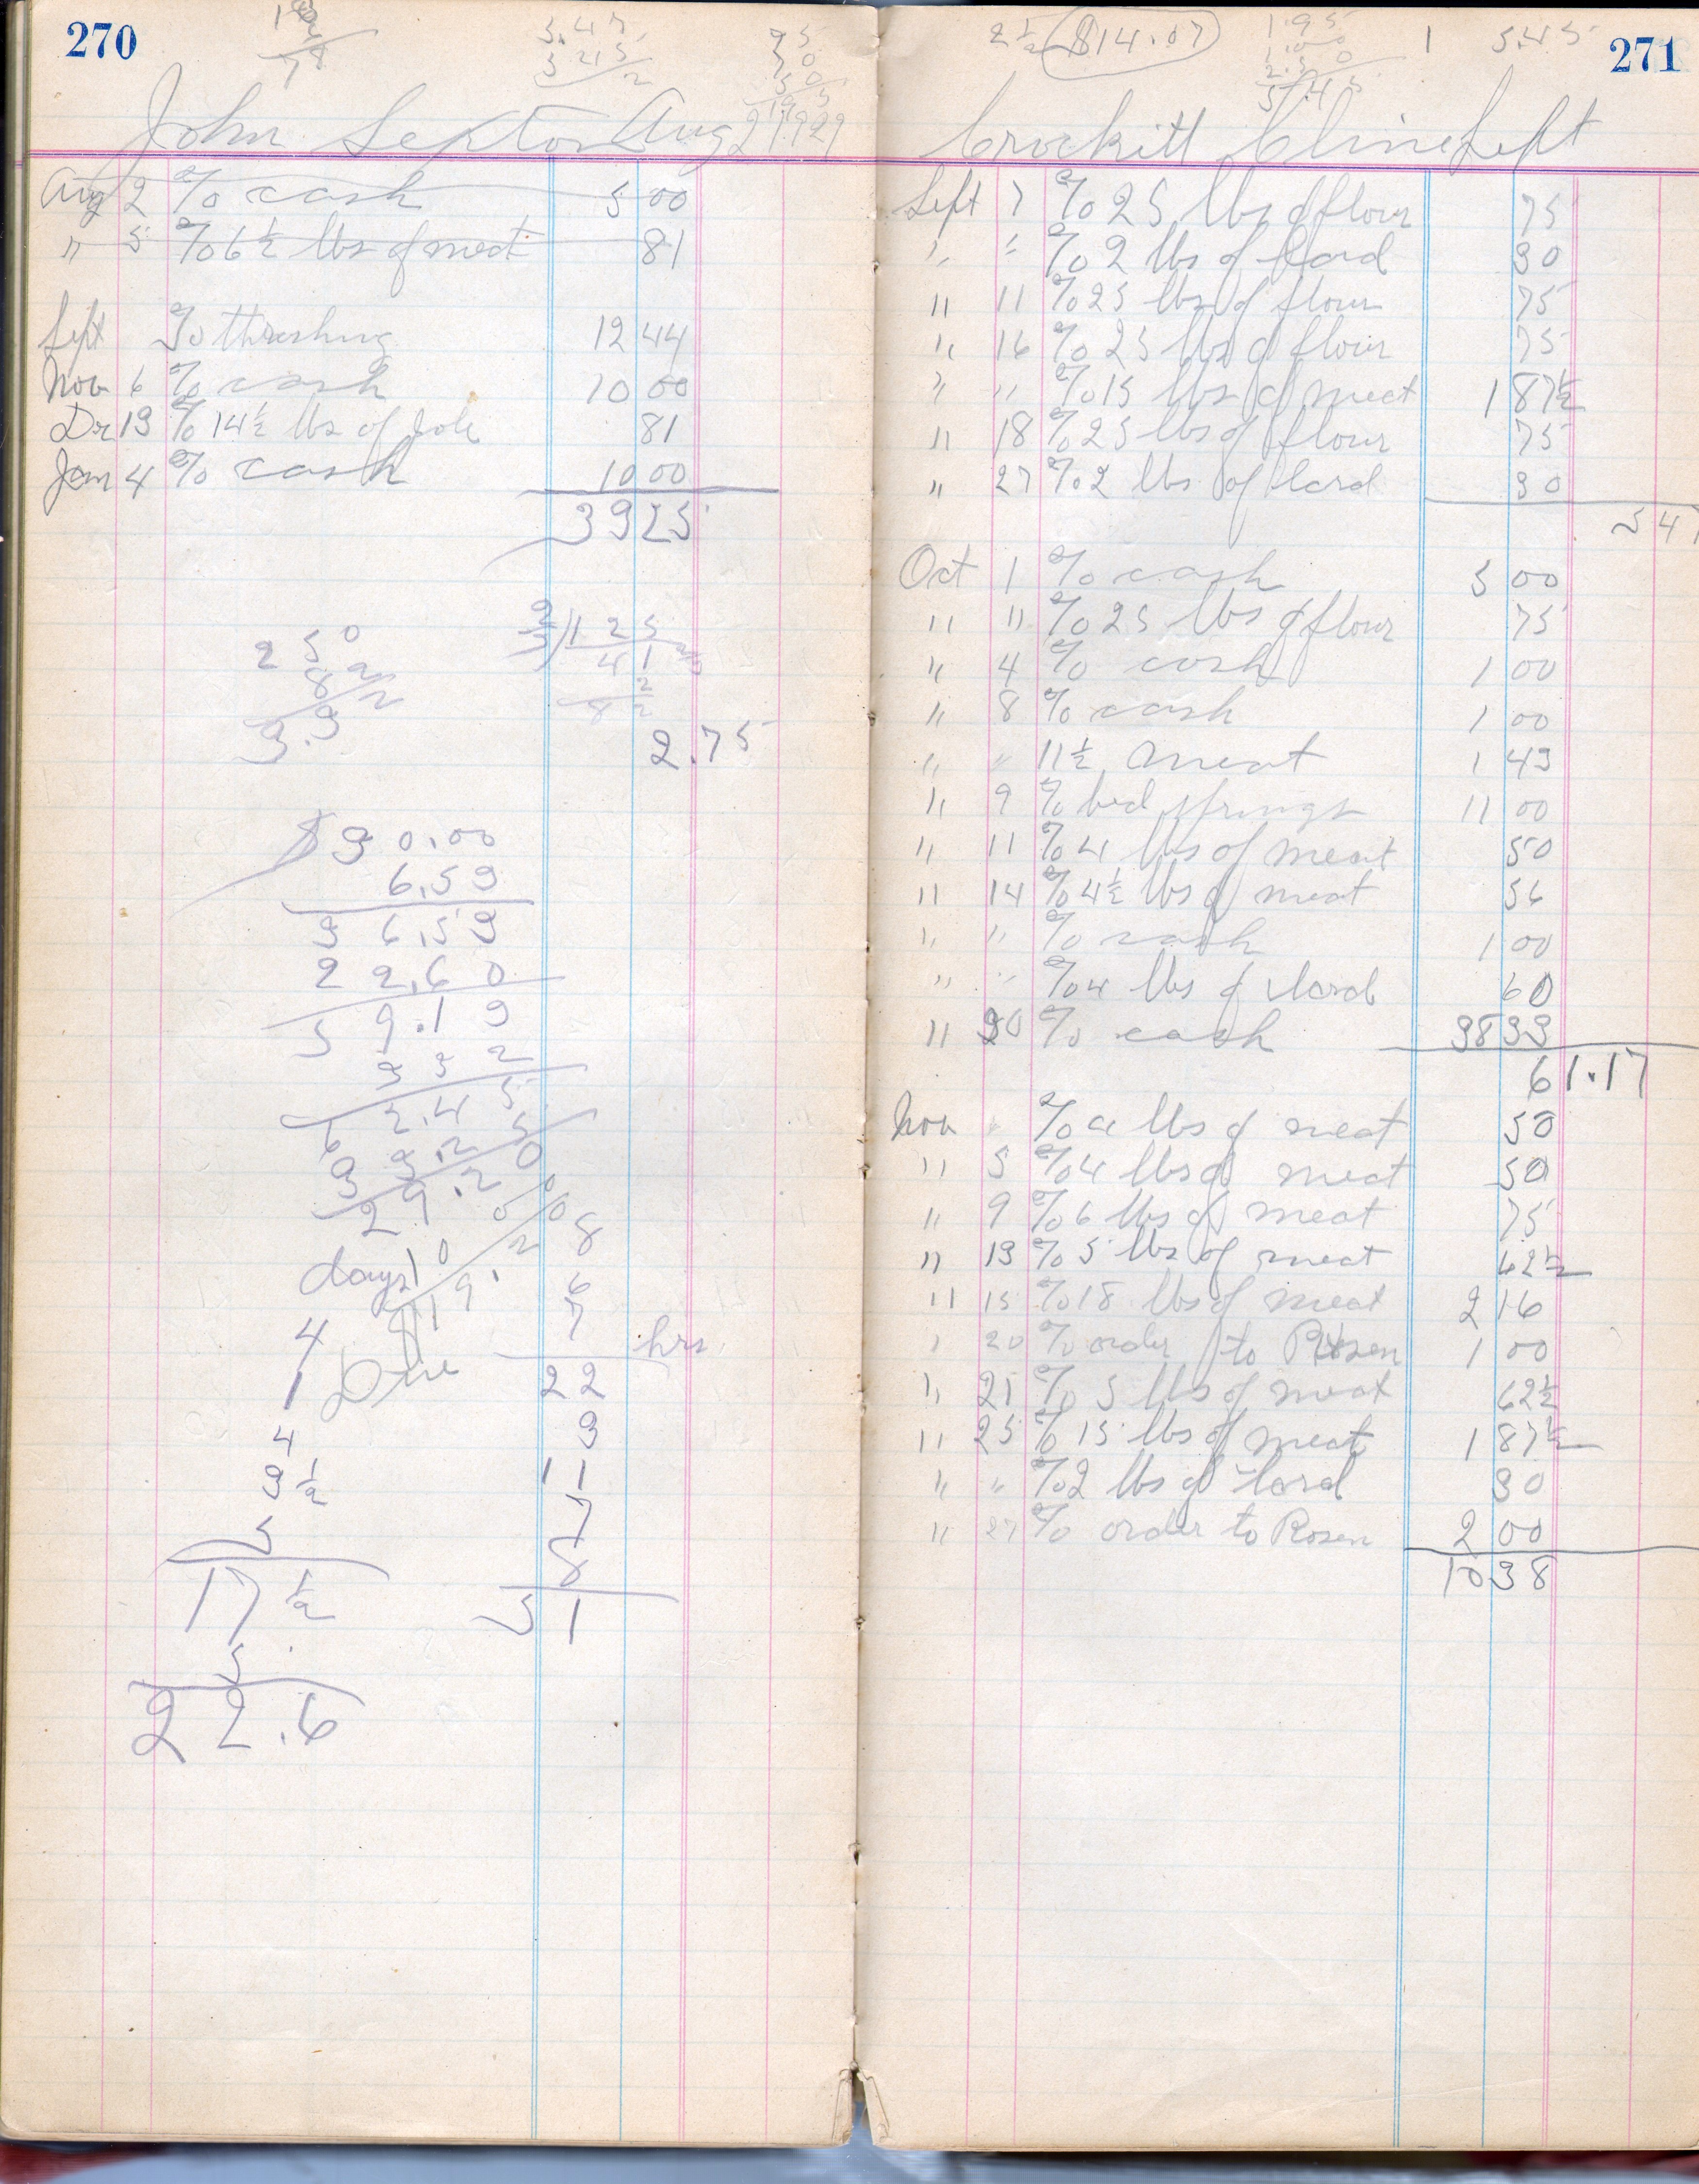 270
5.47
John Sexton Aug 2 1929
Aug 2 % cash 5 00
" 5 % 6 1/2 lbs of meat 81
Sept % threshing 12 44
Nov 6 % cash 10 00
De 13 % 14 1/2 lbs of 81
Jan 4 % cash 10 00
39 25
2 50
1 25
41
82
2.75
$30.00
6.59
36.59
22.60
59.19
days
8
6
7
hrs
4
Due
22
1
3
4
11
3 1/2
7
5
8
17 1/2
51
5
22.6
271
2 1/2 $14.07
1.95
1 5.45
Crockitt Cline Sept
Sept 7 % 25 lbs of flour 75
" " % 2 lbs of lard 30
" 11 % 25 lbs of flour 75
" 16 % 25 lbs of flour 75
" " % 15 lbs of meat 1 87 1/2
" 18 % 25 lbs of flour 75
" 27 % 2 lbs of lard 30
5 47
Oct 1 % cash 5 00
" " % 25 lbs of flour 75
" 4 % cash 1 00
" 8 % cash 1 00
" " 11 1/2 meat 1 43
" 9 % bed springs 11 00
" 11 % 4 lbs of meat 50
" 14 % 4 1/2 lbs of meat 56
" " % cash 1 00
" " % 4 lbs of lard 60
" 30 % cash 38 33
61.17
Nov " % 4 lbs of meat 50
" 5 % 4 lbs of meat 50
" 9 % 6 lbs of meat 75
" 13 % 5 lbs of meat 62 1/2
" 15 % 18 lbs of meat 2 16
" 20 % order to Rosen 1 00
" 21 % 5 lbs of meat 62 1/2
" 25 % 15 lbs of meat 1 87 1/2
" " % 2 lbs of lard 30
" 27 % order to Rosen 2 00
10 38